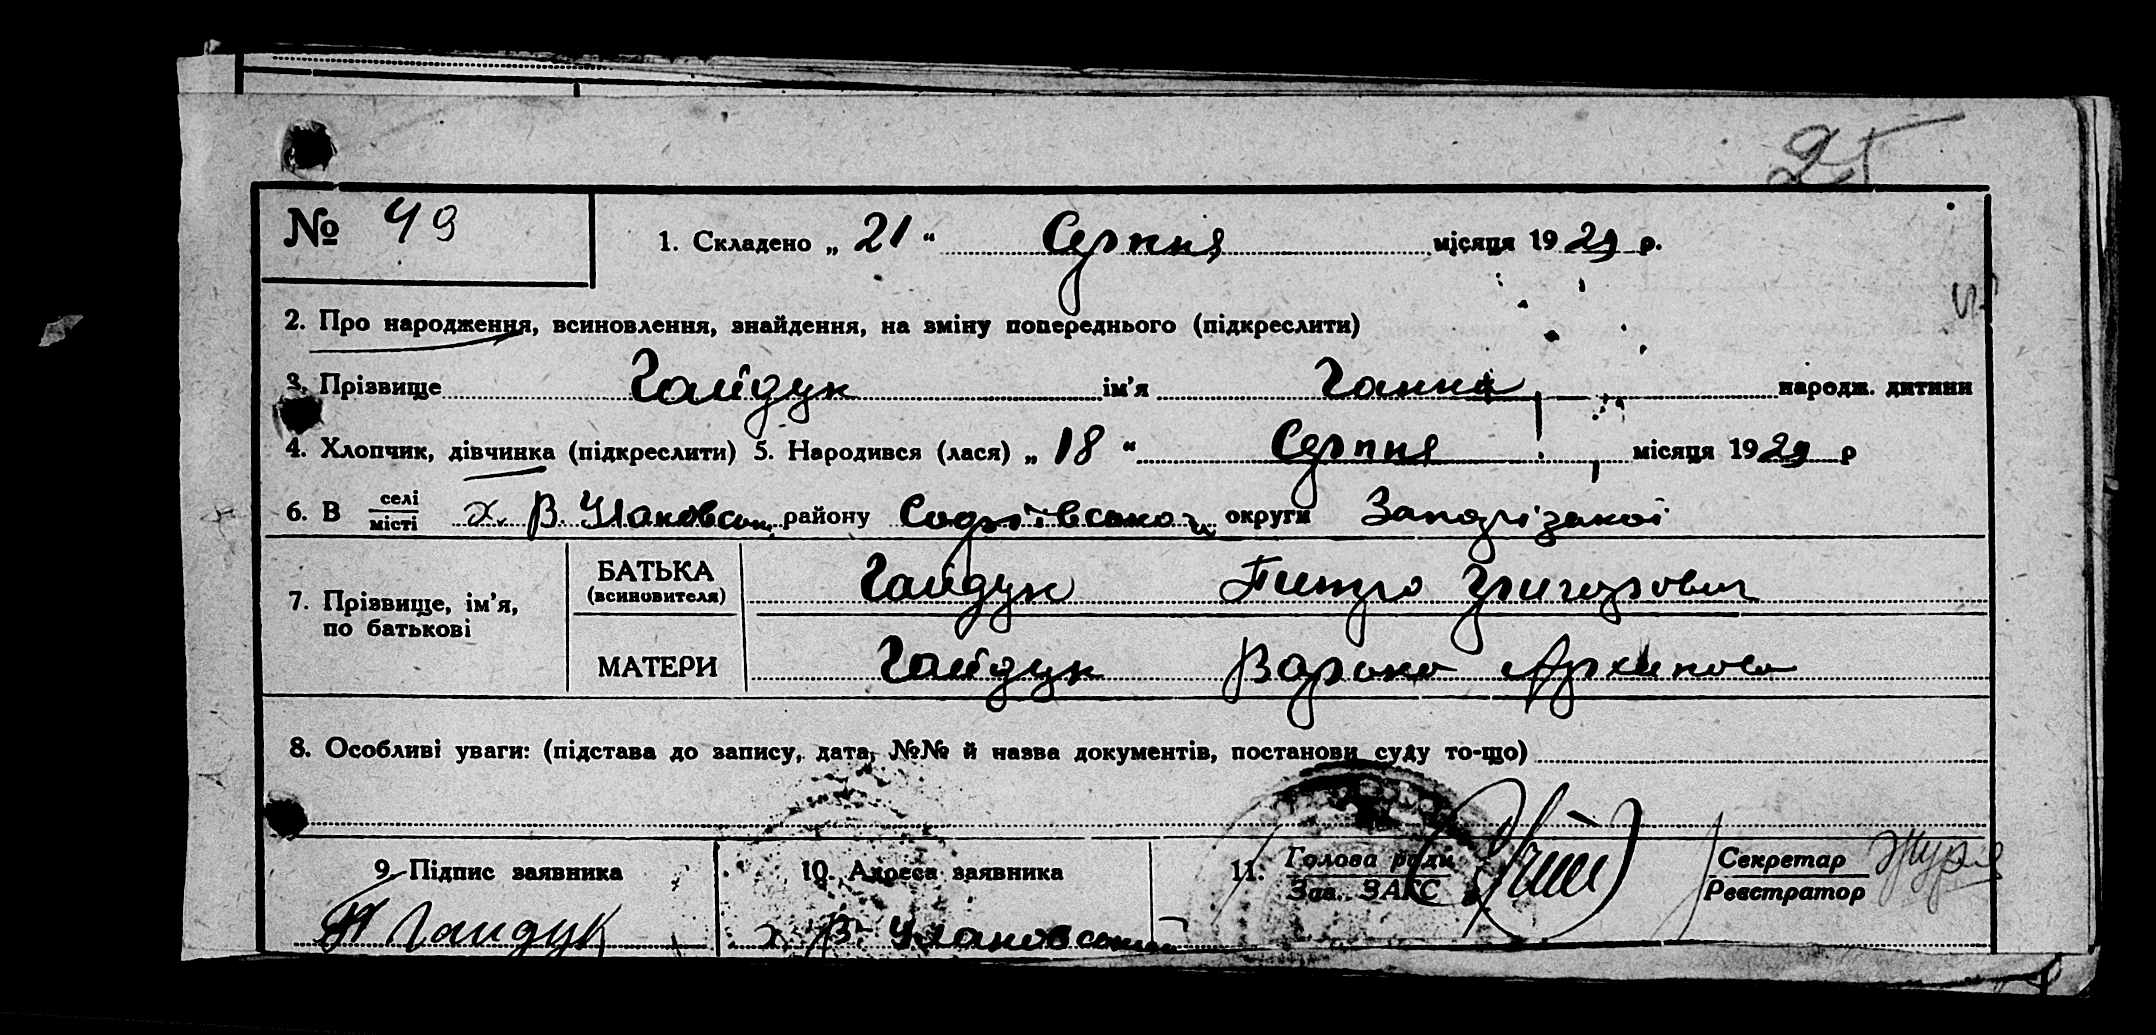 25
№ 49
1. Складено „ 21 “ Серпня місяця 1929 р.
2. Про народження, всиновлення, знайдення, на зміну попереднього (підкреслити)
3. Прізвище Гайдук ім'я Ганна народж. дитини
4. Хлопчик, дівчинка (підкреслити) 5. Народився (лася) „ 18 “ Серпня місяця 1929 р
6. В селі / місті х. В. району Софіївського округи Запорізької
7. Прізвище, ім'я, по батькові
БАТЬКА (всиновителя) Гайдук Петро Григорович
МАТЕРИ Гайдук Варька Архипова
8. Особливі уваги: (підстава до запису, дата, №№ й назва документів, постанови суду то-що)
9. Підпис заявника
10. Адреса заявника
11. Голова ради / Зав. ЗАГС
Секретар / Реєстратор
П Гайдук
х. В.